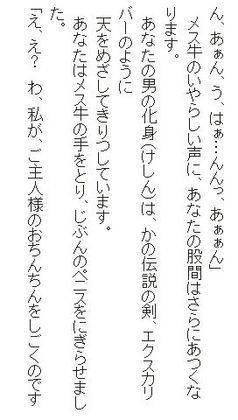 ん、あぁん、う、はぁ…んんっ、あぁん」
メス牛のいやらしい声に、あなたの股間はさらにあつくな
ります。
あなたの男の化身(けしん)は、かの伝説の剣、エクスカリ
バーのように
天をめざしてきりつしています。
あなたはメス牛の手をとり、じぶんのペニスをにぎらせまし
た。
「え、え？　わ、私が、ご主人様のおちんちんをしごくのです